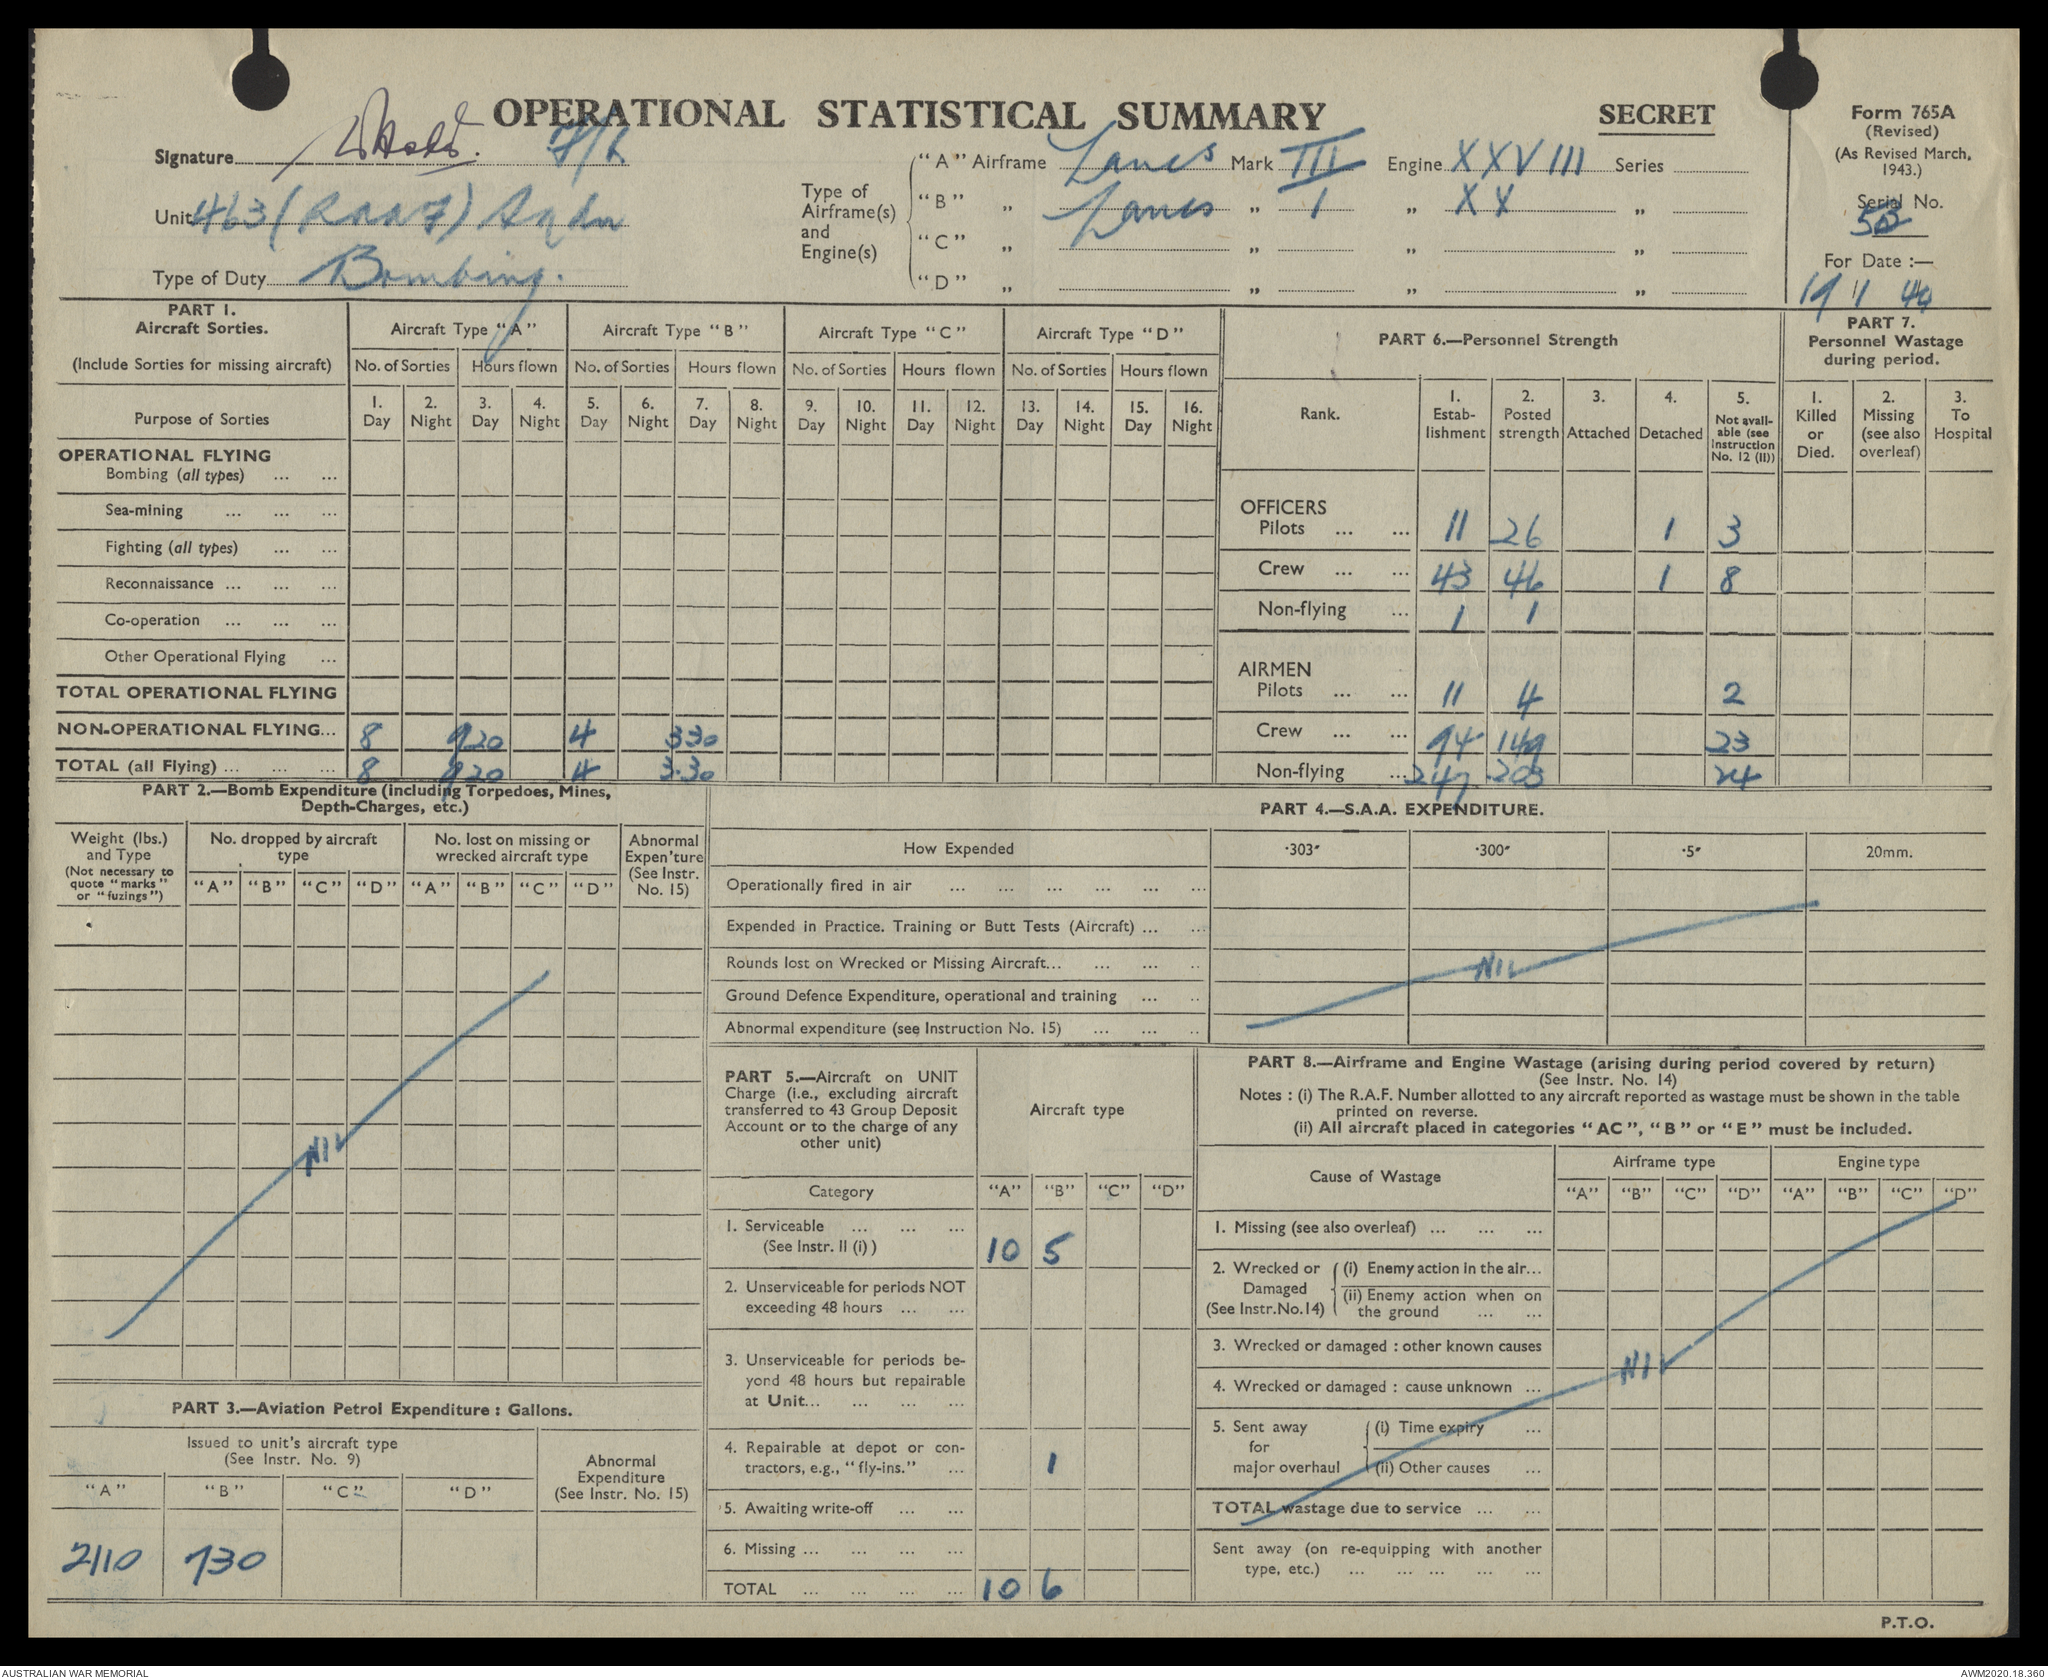 OPERATIONAL STATISTICAL SUMMARY
SECRET
Form 765A
(Revised)
(As Revised March,
1943.)
Signature F/L
Unit 463 (RAAF) Sqdn
Type of Duty Bombing.
Type of
Airframe(s)
and
Engine(s)
"A" Airframe Lancs Mark III Engine XXVIII Series
"B" „ Lancs „ 1 „ XX „
"C" „ „ „ „
"D" „ „ „ „
Serial No.
For Date :—
19 1 44
PART 1.
Aircraft Sorties.
(Include Sorties for missing aircraft)
Aircraft Type "A" Aircraft Type "B" Aircraft Type "C" Aircraft Type "D"
No. of Sorties Hours flown No. of Sorties Hours flown No. of Sorties Hours flown No. of Sorties Hours flown
Purpose of Sorties
1. Day 2. Night 3. Day 4. Night 5. Day 6. Night 7. Day 8. Night 9. Day 10. Night 11. Day 12. Night 13. Day 14. Night 15. Day 16. Night
OPERATIONAL FLYING
Bombing (all types) ... ...
Sea-mining ... ... ...
Fighting (all types) ... ...
Reconnaissance ... ... ...
Co-operation ... ... ...
Other Operational Flying ...
TOTAL OPERATIONAL FLYING
NON-OPERATIONAL FLYING... 8 920 4 330
TOTAL (all Flying) ... ... ... 8 920 4 3.30
PART 6.—Personnel Strength
Rank.
1. Estab-lishment
2. Posted strength
3. Attached
4. Detached
5. Not avail-able (see Instruction No. 12 (II))
PART 7.
Personnel Wastage
during period.
1. Killed or Died.
2. Missing (see also overleaf)
3. To Hospital
OFFICERS
Pilots ... ... 11 26 1 3
Crew ... ... 43 46 1 8
Non-flying ... 1 1
AIRMEN
Pilots ... ... 11 4 2
Crew ... ... 94 149 23
Non-flying ... 247 203 24
PART 2.—Bomb Expenditure (including Torpedoes, Mines,
Depth-Charges, etc.)
Weight (lbs.)
and Type
(Not necessary to
quote "marks"
or "fuzings")
No. dropped by aircraft
type
No. lost on missing or
wrecked aircraft type
Abnormal
Expen'ture
(See Instr.
No. 15)
"A" "B" "C" "D" "A" "B" "C" "D"
NIL
PART 3.—Aviation Petrol Expenditure : Gallons.
Issued to unit's aircraft type
(See Instr. No. 9)
Abnormal
Expenditure
(See Instr. No. 15)
"A" "B" "C" "D"
2110 730
PART 4.—S.A.A. EXPENDITURE.
How Expended ·303" ·300" ·5" 20mm.
Operationally fired in air ... ... ... ... ... ...
Expended in Practice. Training or Butt Tests (Aircraft) ... ...
Rounds lost on Wrecked or Missing Aircraft... ... ... ..
Ground Defence Expenditure, operational and training ... ..
Abnormal expenditure (see Instruction No. 15) ... ... ..
NIL
PART 5.—Aircraft on UNIT
Charge (i.e., excluding aircraft
transferred to 43 Group Deposit
Account or to the charge of any
other unit)
Aircraft type
Category "A" "B" "C" "D"
1. Serviceable ... ... ...
(See Instr. II (i) ) 10 5
2. Unserviceable for periods NOT
exceeding 48 hours ... ...
3. Unserviceable for periods be-
yond 48 hours but repairable
at Unit... ... ... ...
4. Repairable at depot or con-
tractors, e.g., "fly-ins." ... 1
5. Awaiting write-off ... ...
6. Missing ... ... ... ...
TOTAL ... ... ... ... 10 6
PART 8.—Airframe and Engine Wastage (arising during period covered by return)
(See Instr. No. 14)
Notes : (i) The R.A.F. Number allotted to any aircraft reported as wastage must be shown in the table
printed on reverse.
(ii) All aircraft placed in categories "AC", "B" or "E" must be included.
Cause of Wastage
Airframe type Engine type
"A" "B" "C" "D" "A" "B" "C" "D"
1. Missing (see also overleaf) ... ... ...
2. Wrecked or
Damaged
(See Instr.No.14)
(i) Enemy action in the air...
(ii) Enemy action when on
the ground ... ...
3. Wrecked or damaged : other known causes
4. Wrecked or damaged : cause unknown ...
5. Sent away
for
major overhaul
(i) Time expiry ...
(ii) Other causes ...
TOTAL wastage due to service ... ...
Sent away (on re-equipping with another
type, etc.) ... ... ... ... ...
NIL
P.T.O.
AUSTRALIAN WAR MEMORIAL
AWM2020.18.360